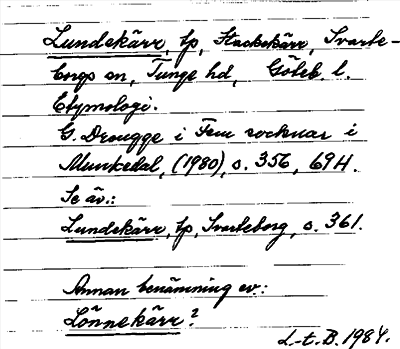 Lundekärr, tp, Stackekärr, Svarte-
borgs sn, Tunge hd, Göteb. l.
Etymologi.
G. Drougge i Fem socknar i
Munkedal, (1980), s. 356, 694.
Se äv.:
Lundekärr, tp, Svarteborg, s. 361.
Annan benämning ev.:
Lönnekärr?
L-t. B. 1984.